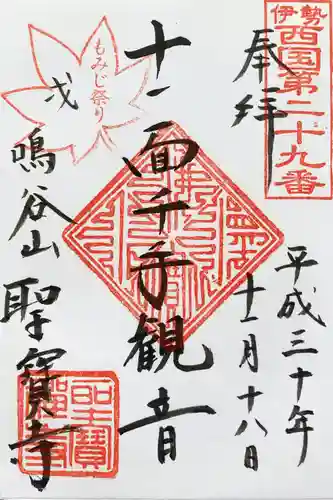 伊勢
西国第二十九番
奉拝
平成三十年
十一月十八日
十一面千手観音
もみじ祭り
戌
鳴谷山
聖寶寺
聖寶禅寺